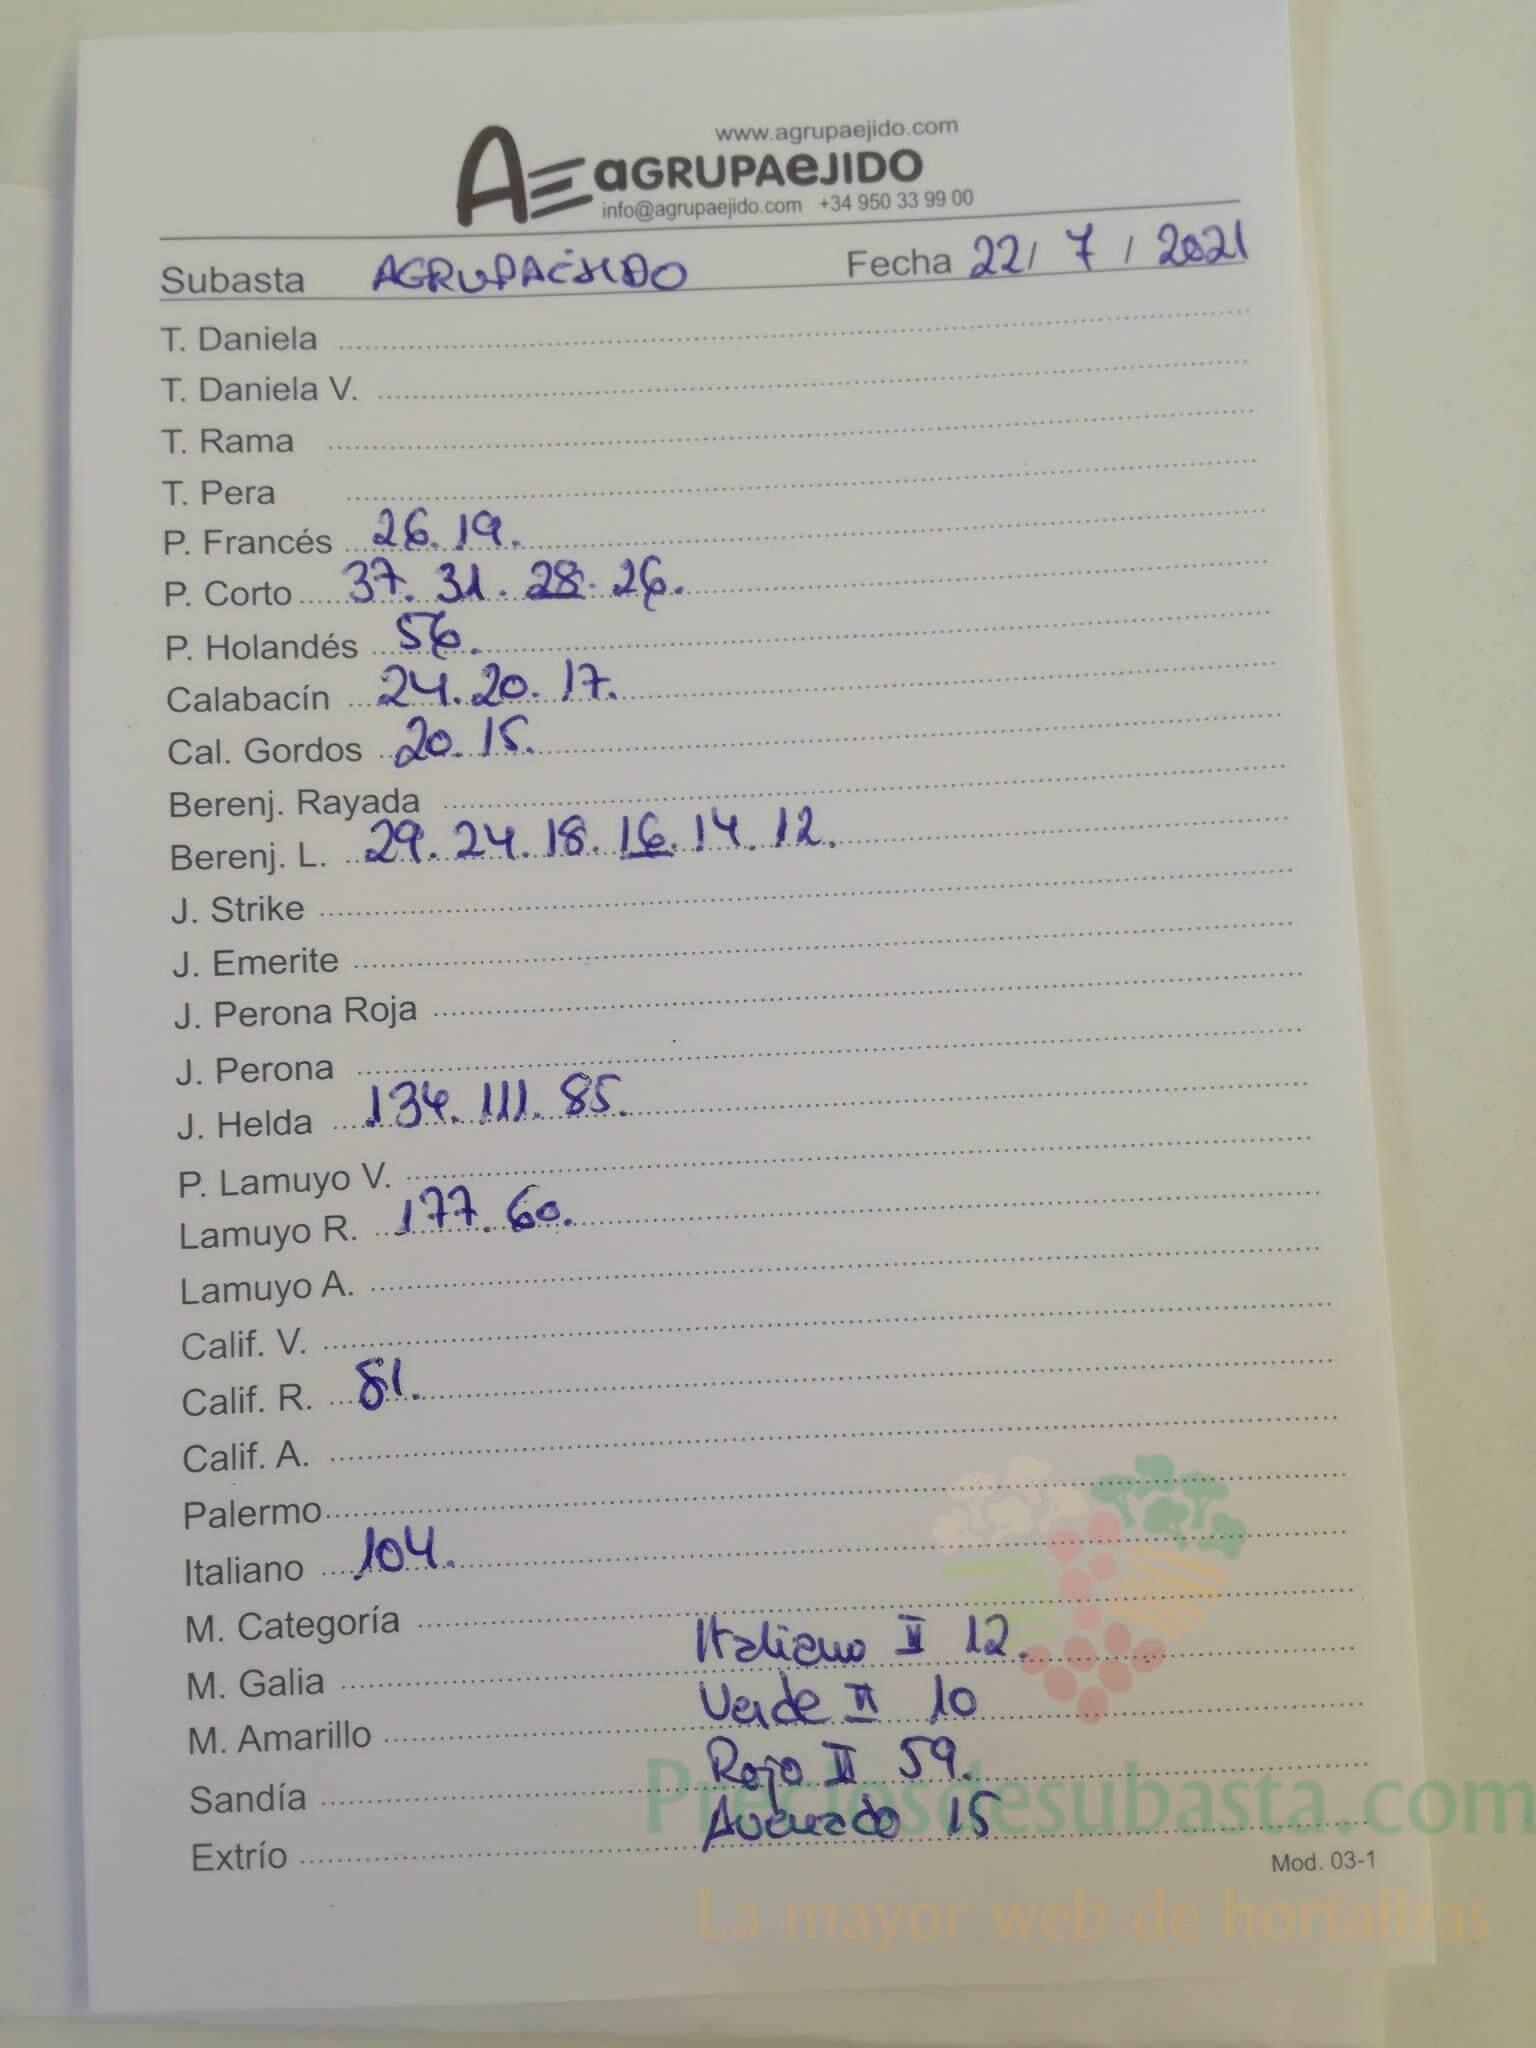 www.agrupaejido.com
AE aGRUPAeJIDO
info@agrupaejido.com +34 950 33 99 00
Subasta AGRUPAEJIDO Fecha 22/ 7 / 2021
T. Daniela
T. Daniela V.
T. Rama
T. Pera
P. Francés 26. 19.
P. Corto 37. 31. 28. 26.
P. Holandés 56.
Calabacín 24. 20. 17.
Cal. Gordos 20. 15.
Berenj. Rayada
Berenj. L. 29. 24. 18. 16. 14. 12.
J. Strike
J. Emerite
J. Perona Roja
J. Perona
J. Helda 134. 111. 85.
P. Lamuyo V.
Lamuyo R. 177. 60.
Lamuyo A.
Calif. V.
Calif. R. 81.
Calif. A.
Palermo
Italiano 104.
M. Categoría
Italiano II 12.
M. Galia
Verde II 10
M. Amarillo
Rojo II 59.
Sandía
Preciosdesubasta.com
Avenzado 15
Extrío
Mod. 03-1
La mayor web de hortalizas